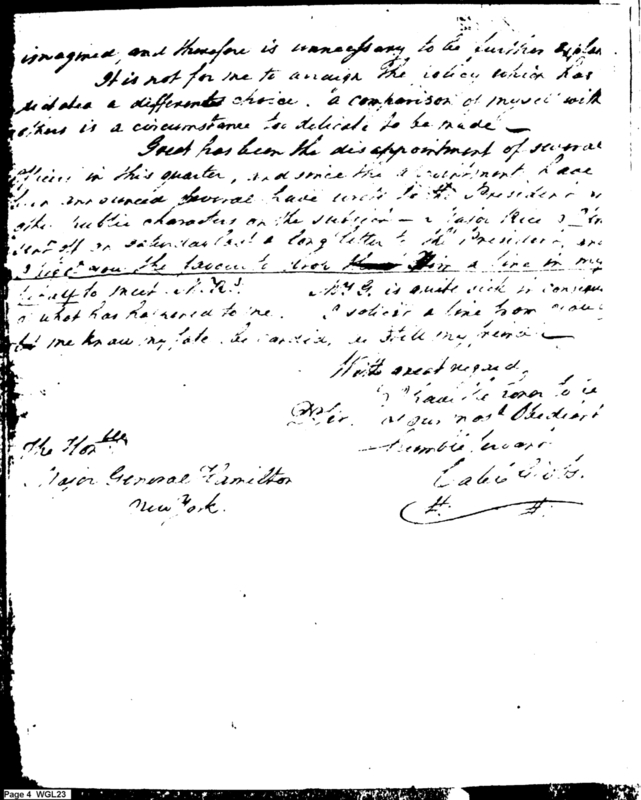 imagined, and therefore is unnecessary to be further explan
It is not for me to arraign the policy which has
dictated a different choice. a comparison of myself with
others is a circumstance too delicate to be made —
Great has been the disappointment of several
officers in this quarter, and since the have
been announced several have wrote to the President &
other public characters on the subject — Major Rice
sent off on saturday last a long letter to the President, and
the favour to a line in my
to meet Mrs G. is quite sick in consequ
of what has happened to me. I solicit a line from you
let me know my fate. be candid, as still my friend —
With great regard,
I have the honor to be
D Sir. your most Obedient
humble servant
Caleb Gibbs.
The Honble
Major General Hamilton
New York.
Page 4 WGL23